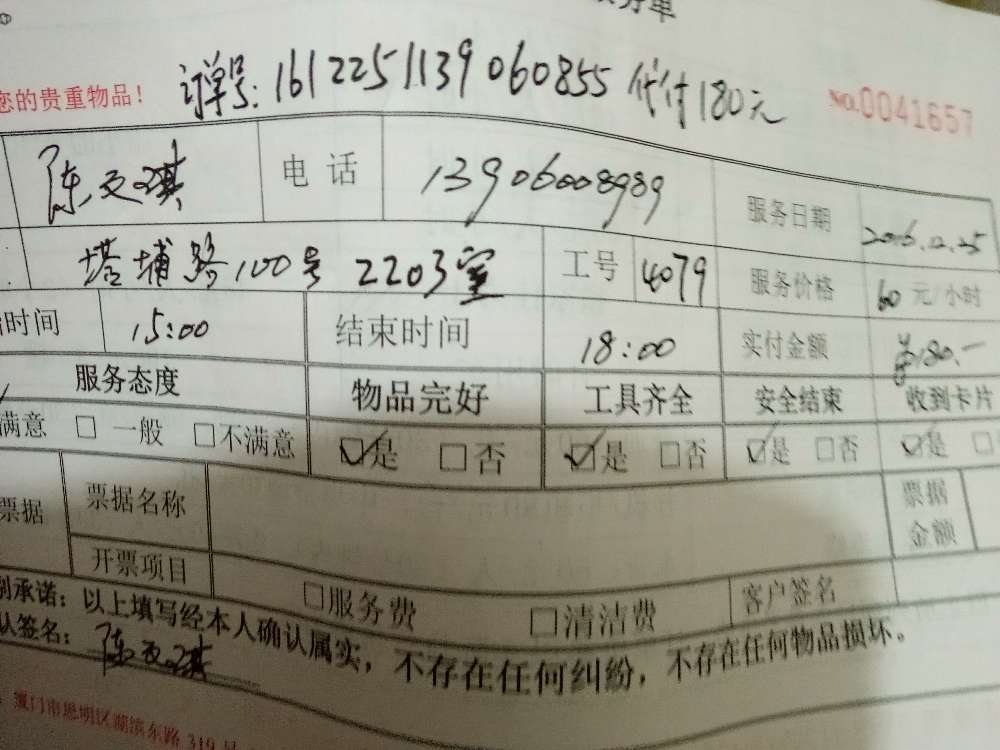 务单
您的贵重物品！ 订单号：1612251139060855 代付180元 NO.0041657
陈文琪 电话 13906008989 服务日期 2016.12.25
塔埔路100号 2203室 工号 4079 服务价格 60元/小时
时间 15:00 结束时间 18:00 实付金额 ¥180.-
服务态度 物品完好 工具齐全 安全结束 收到卡片
满意 □一般 □不满意 ☑是 □否 ☑是 □否 ☑是 □否 ☑是 □
票据 票据名称 票据金额
开票项目 □服务费 □清洁费 客户签名
承诺：以上填写经本人确认属实，不存在任何纠纷，不存在任何物品损坏。
认签名：陈文琪
厦门市思明区湖滨东路319号